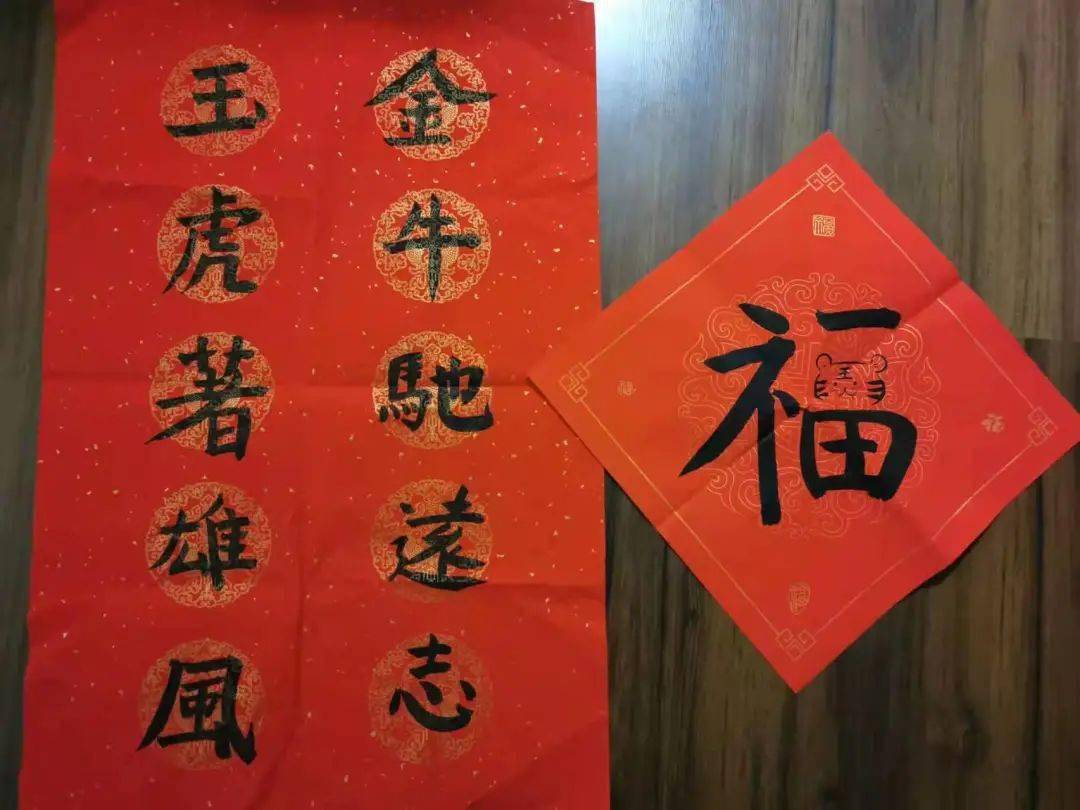 金牛馳遠志
玉虎著雄風
福
王